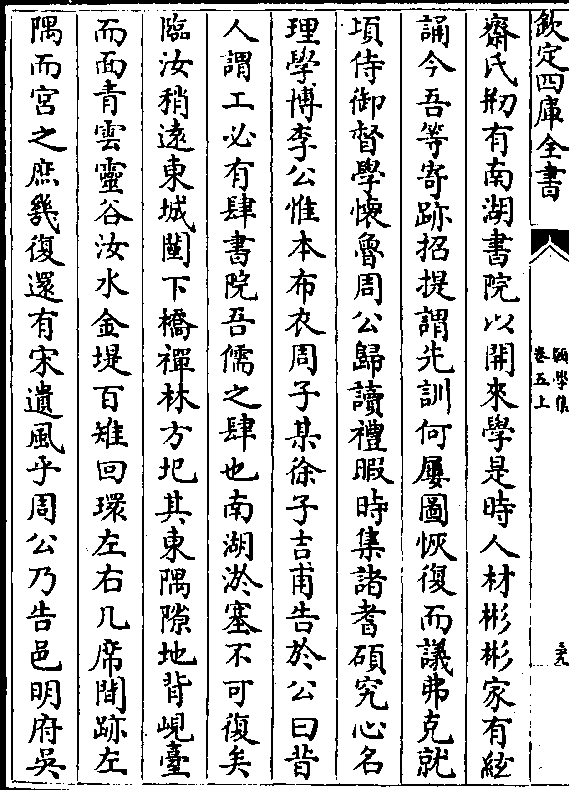 欽定四庫全書
卷五上
齋氏刱有南湖書院以開來學是時人材彬彬家有絃
誦今吾等寄跡招提謂先訓何屢圖恢復而議弗克就
項侍御督學懷魯周公歸讀禮暇時集諸耆碩究心名
理學博李公惟本布衣周子某徐子吉甫告於公曰昔
人謂工必有肆書院吾儒之肆也南湖淤塞不可復矣
臨汝稍遠東城闉下橋禪林方圯其東隅隙地背峴臺
而面青雲靈谷汝水金堤百雉回環左右几席間跡左
隅而宮之庶幾復還有宋遺風乎周公乃告邑明府吳